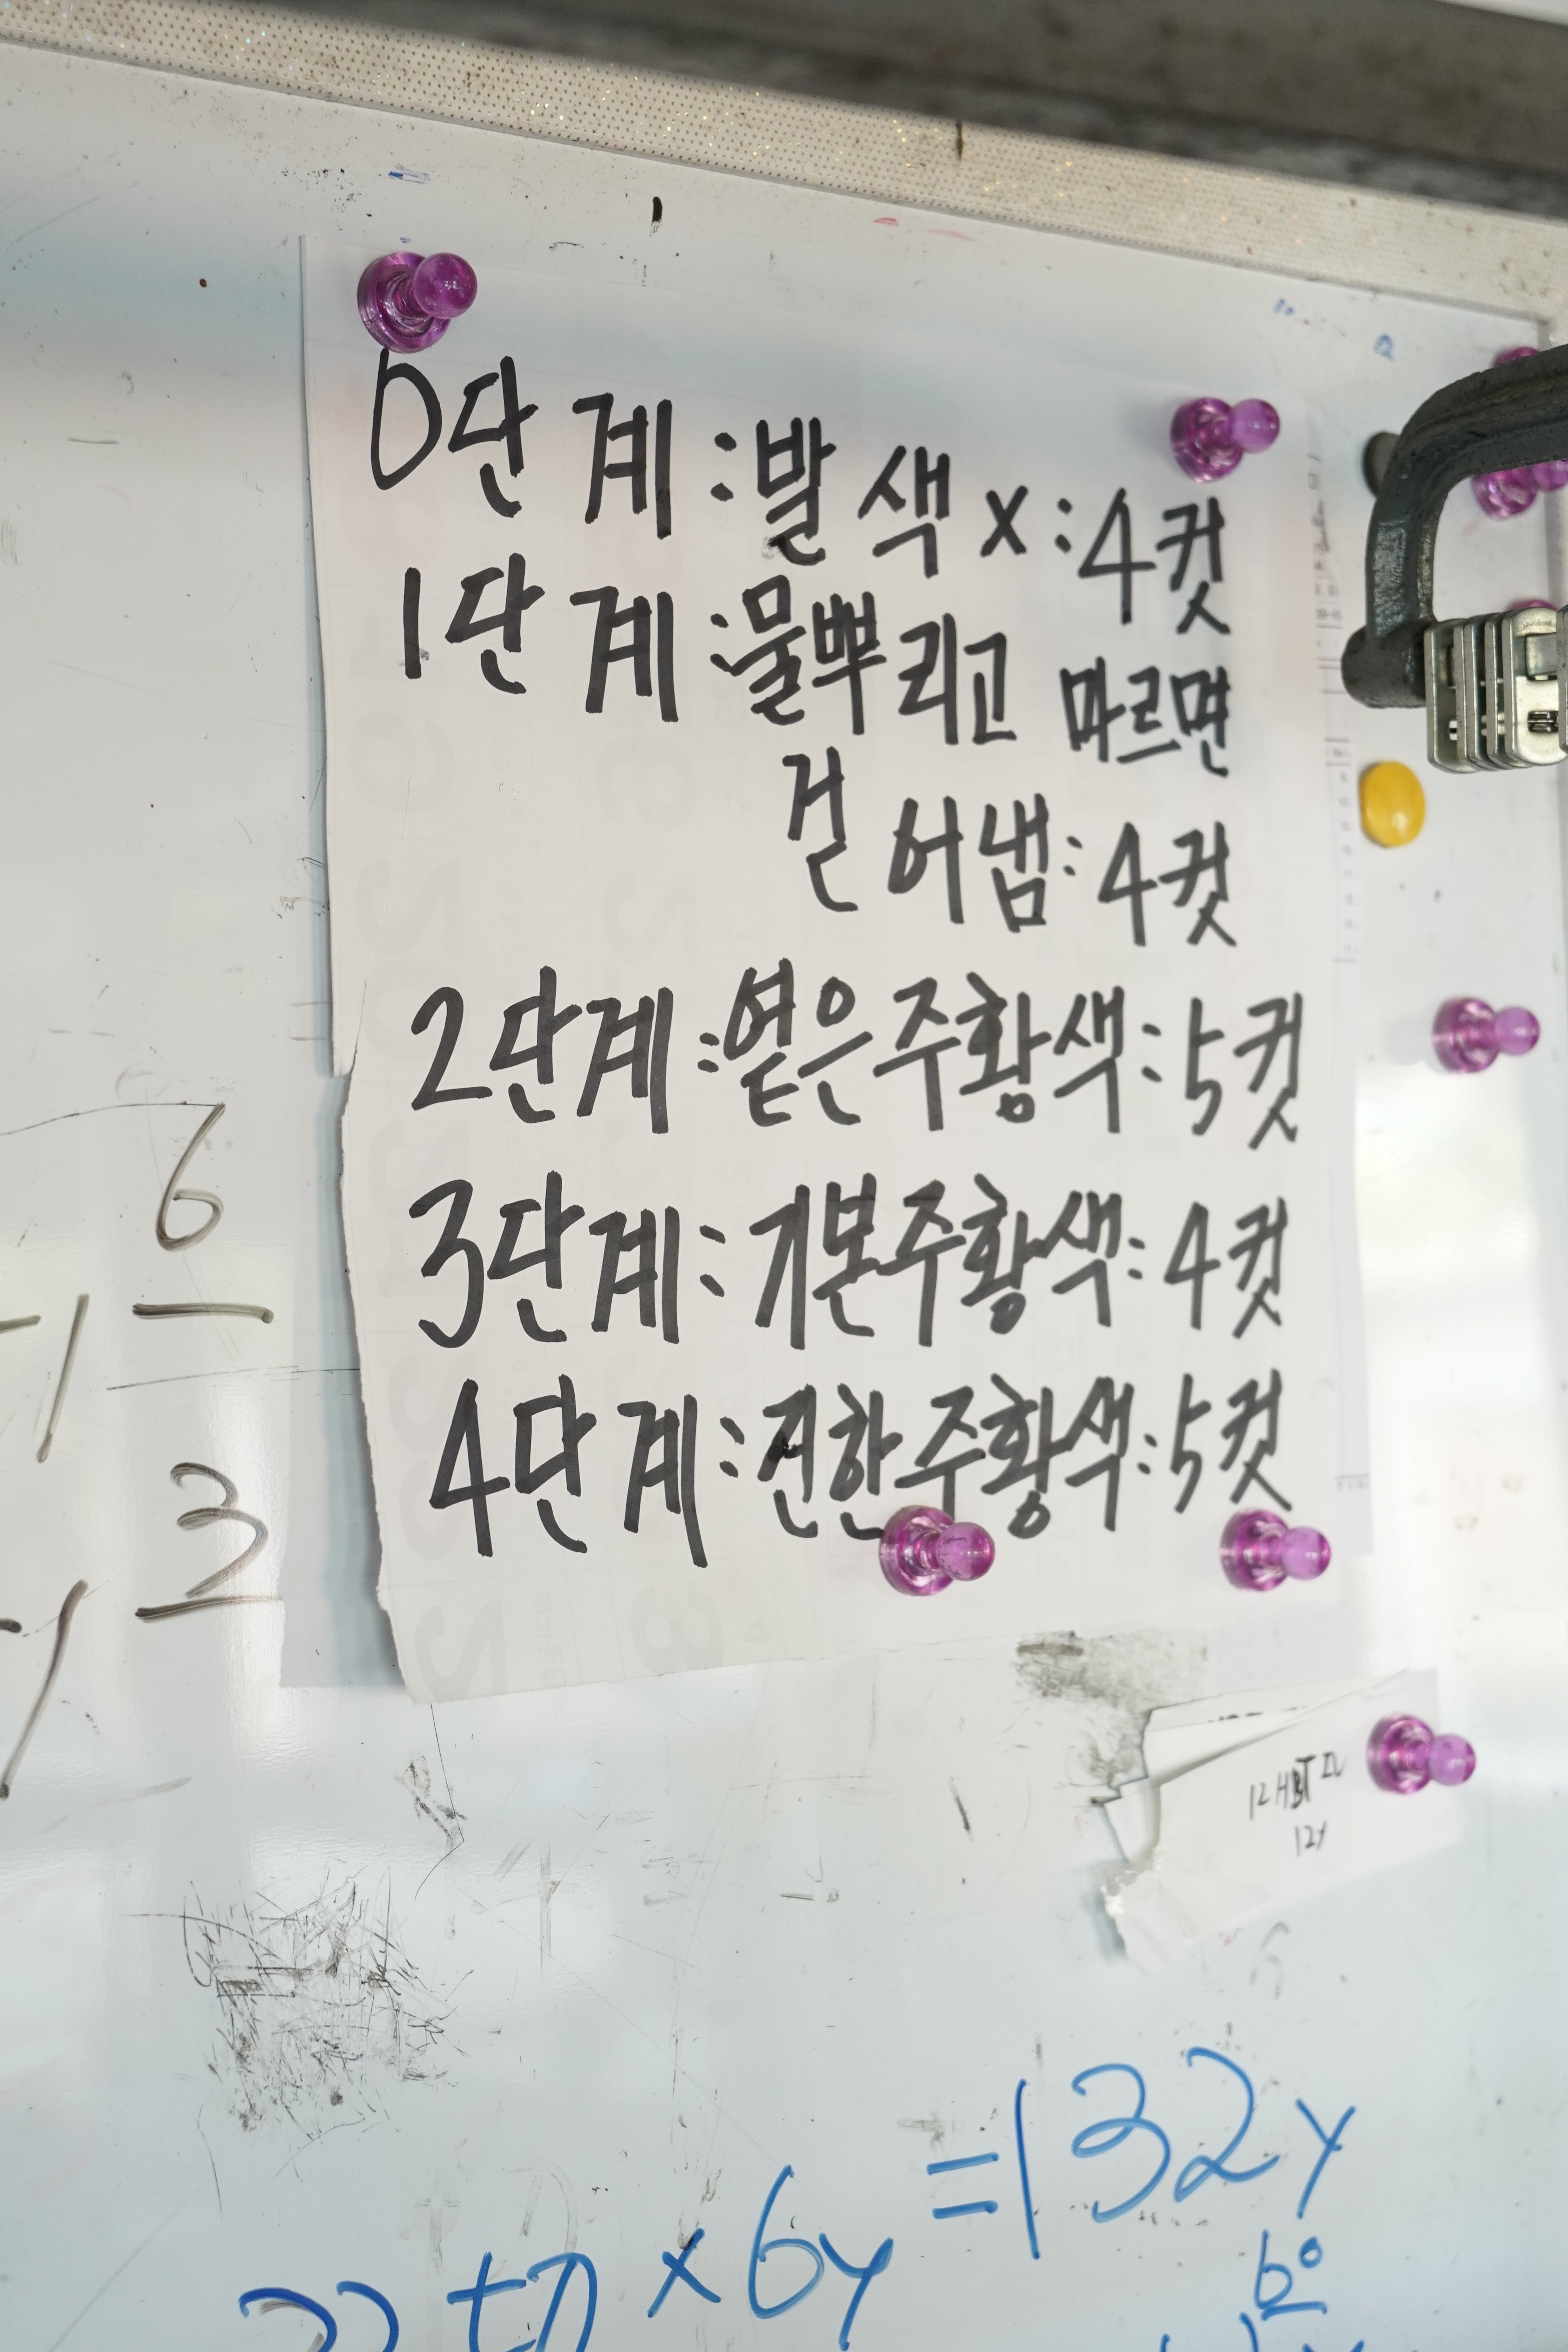 0단계:발색x:4컷
1단계:물뿌리고 마르면
걷어냄:4컷
2단계:옅은주황색:5컷
3단계:기본주황색:4컷
4단계:진한주황색:5컷
6
3
12HBT
12Y
=132Y
x6y
6°